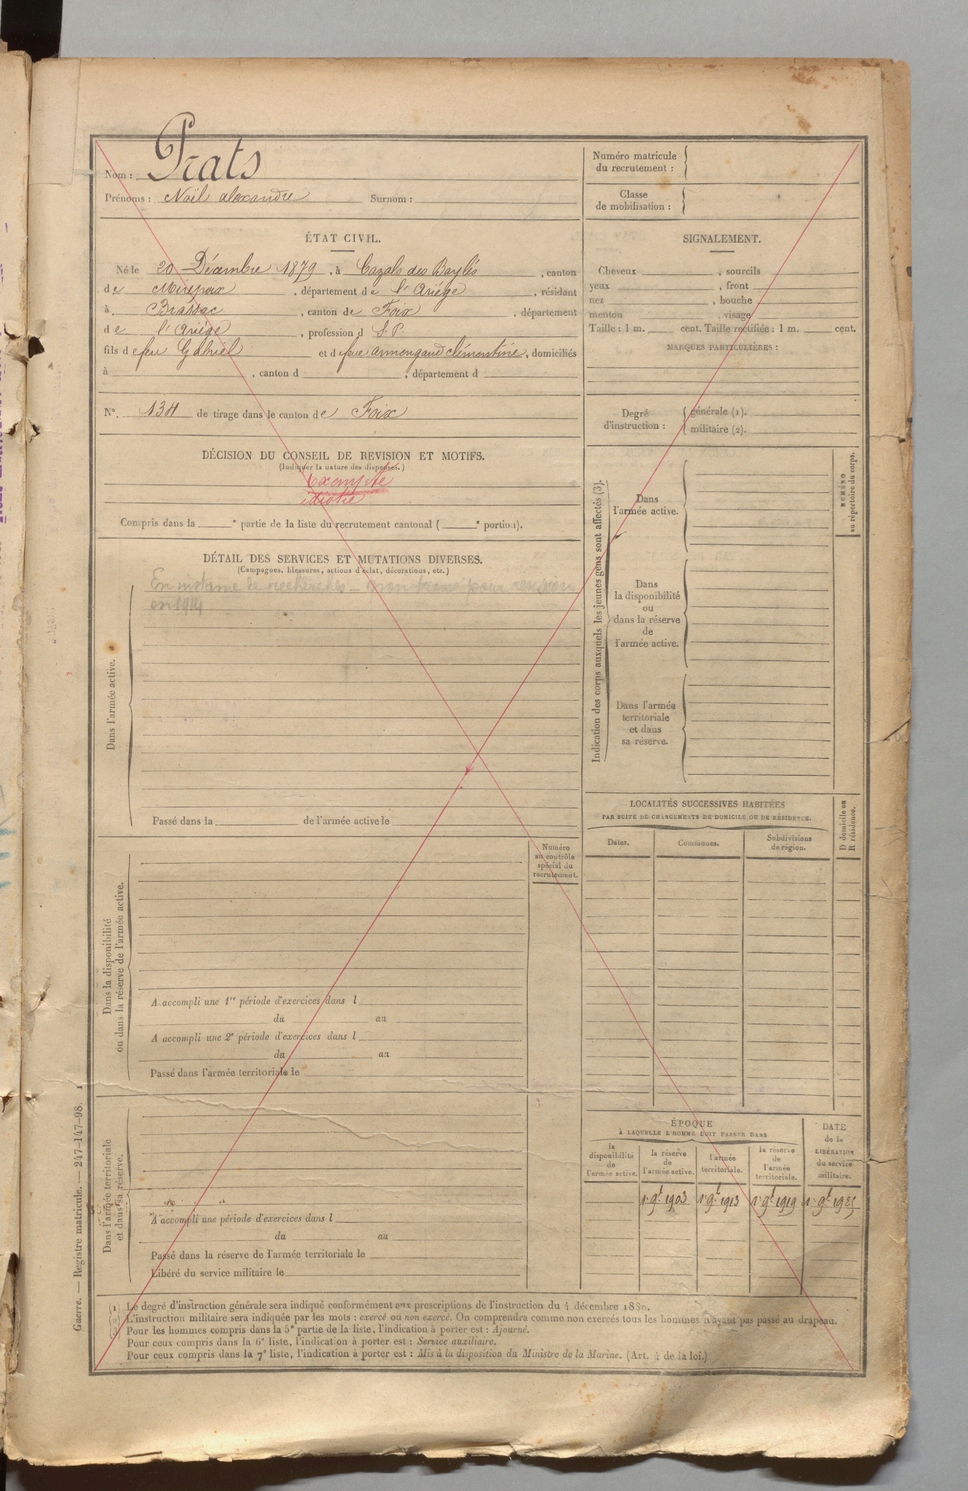 Nom : Prats
Prénoms : Noël alexandre Surnom :
Numéro matricule
du recrutement :
Classe
de mobilisation :
ÉTAT CIVIL.
Né le 20 Décembre 1879, à Cazals des Baylès, canton
de Mirepoix, département de l'Ariège, résidant
à Brassac, canton de Foix, département
de l'Ariège, profession d S.P.
fils de feu Gabriel et de feue armengaud clémentine, domiciliés
à , canton d , département d
N°. 134 de tirage dans le canton de Foix
SIGNALEMENT.
Cheveux , sourcils
yeux , front
nez , bouche
menton , visage
Taille : 1 m. cent. Taille rectifiée : 1 m. cent.
MARQUES PARTICULIÈRES :
Degré
d'instruction :
générale (1).
militaire (2).
DÉCISION DU CONSEIL DE REVISION ET MOTIFS.
(Indiquer la nature des dispenses.)
Exempté
idiotie
Compris dans la e partie de la liste du recrutement cantonal ( e portion).
DÉTAIL DES SERVICES ET MUTATIONS DIVERSES.
(Campagnes, blessures, actions d'éclat, décorations, etc.)
En instance de recherches – non
en 1914
Dans l'armée active.
Passé dans la de l'armée active le
Indication des corps auxquels les jeunes gens sont affectés (3).
Dans
l'armée active.
Dans
la disponibilité
ou
dans la réserve
de
l'armée active.
Dans l'armée
territoriale
et dans
sa réserve.
NUMÉRO
au répertoire du corps.
LOCALITÉS SUCCESSIVES HABITÉES
PAR SUITE DE CHANGEMENTS DE DOMICILE OU DE RÉSIDENCE.
Dates.
Communes.
Subdivisions
de région.
D domicile ou
R résidence.
Numéro
au contrôle
spécial du
recrutement.
Dans la disponibilité
ou dans la réserve de l'armée active.
A accompli une 1re période d'exercices dans l
du au
A accompli une 2e période d'exercices dans l
du au
Passé dans l'armée territoriale le
Dans l'armée territoriale
et dans sa réserve.
A accompli une période d'exercices dans l
du au
Passé dans la réserve de l'armée territoriale le
Libéré du service militaire le
ÉPOQUE
À LAQUELLE L'HOMME DOIT PASSER DANS
la
disponibilité
de
l'armée active.
la réserve
de
l'armée active.
l'armée
territoriale.
la réserve
de
l'armée
territoriale.
DATE
de la
LIBÉRATION
du service
militaire.
1er 9bre 1903
1er 9bre 1913
1er 9bre 1919
Guerre. — Registre matricule. — 247-147-98.
(1) Le degré d'instruction générale sera indiqué conformément aux prescriptions de l'instruction du 4 décembre 1889.
(2) L'instruction militaire sera indiquée par les mots : exercé ou non exercé. On comprendra comme non exercés tous les hommes n'ayant pas passé au drapeau.
(3) Pour les hommes compris dans la 5e partie de la liste, l'indication à porter est : Ajourné.
Pour ceux compris dans la 6e liste, l'indication à porter est : Service auxiliaire.
Pour ceux compris dans la 7e liste, l'indication à porter est : Mis à la disposition du Ministre de la Marine. (Art. 4 de la loi.)